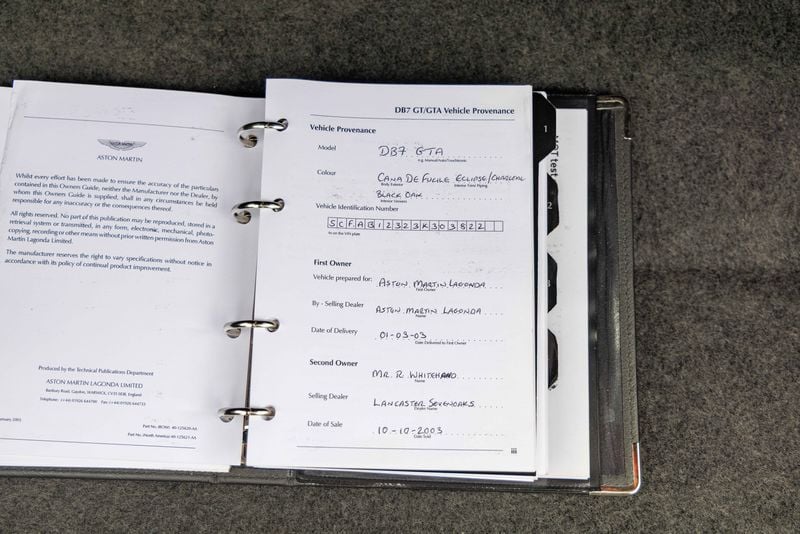 ASTON MARTIN
Whilst every effort has been made to ensure the accuracy of the particulars
contained in this Owners Guide, neither the Manufacturer nor the Dealer, by
whom this Owners Guide is supplied, shall in any circumstances be held
responsible for any inaccuracy or the consequences thereof.
All rights reserved. No part of this publication may be reproduced, stored in a
retrieval system or transmitted, in any form, electronic, mechanical, photo-
copying, recording or other means without prior written permission from Aston
Martin Lagonda Limited.
The manufacturer reserves the right to vary specifications without notice in
accordance with its policy of continual product improvement.
Produced by the Technical Publications Department
ASTON MARTIN LAGONDA LIMITED
Banbury Road, Gaydon, WARWICK, CV35 0DB, England
Telephone: (++44) 01926 644700 Fax: (++44) 01926 644733
January 2003
Part No. (ROW) 40-125620-AA
Part No. (North America) 40-125621-AA
DB7 GT/GTA Vehicle Provenance
Vehicle Provenance
Model DB7 GTA
e.g. Manual/Auto/Touchtronic
Colour CANA DE FUCILE ECLIPSE/CHARCOAL
Body Exterior Interior Trim/Piping
BLACK OAK
Interior Veneers
Vehicle Identification Number
SCFAB12323K303822
As on the VIN plate
First Owner
Vehicle prepared for: ASTON MARTIN LAGONDA
First Owner
By - Selling Dealer ASTON MARTIN LAGONDA
Name
Date of Delivery 01-03-03
Date Delivered to First Owner
Second Owner
MR. R. WHITEHAND
Name
Selling Dealer LANCASTER SEVENOAKS
Dealer Name
Date of Sale 10-10-2003
Date Sold
iii
1
2
3
MOT test